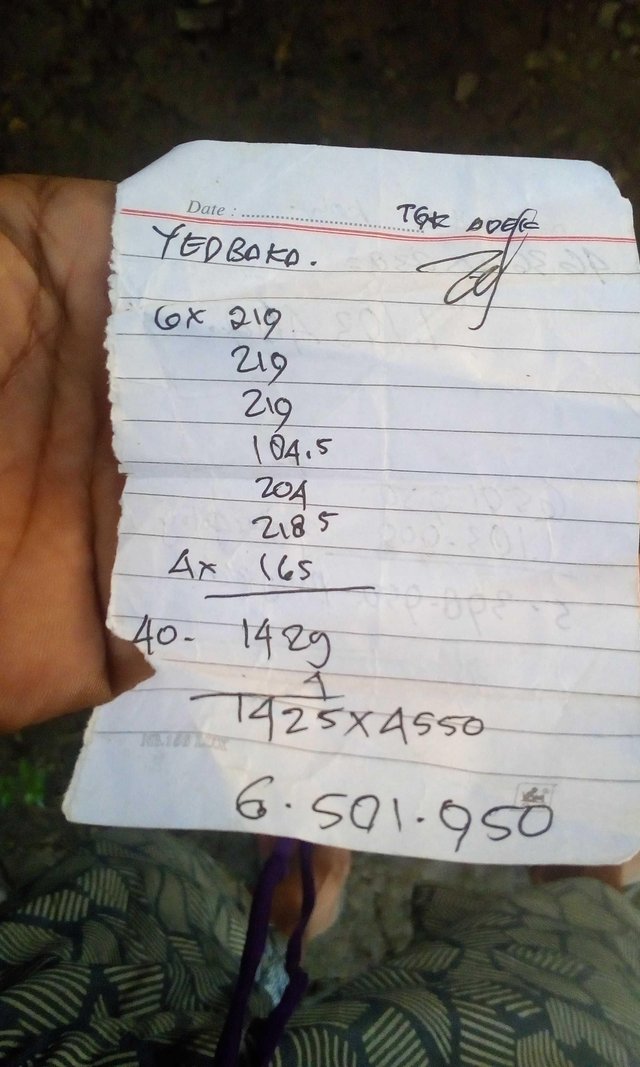 Date : TGK ADEK
YEDBAKA.
6x 219
219
219
184.5
204
218 5
4x 165
40- 1429
4
1425x4550
6.501.950